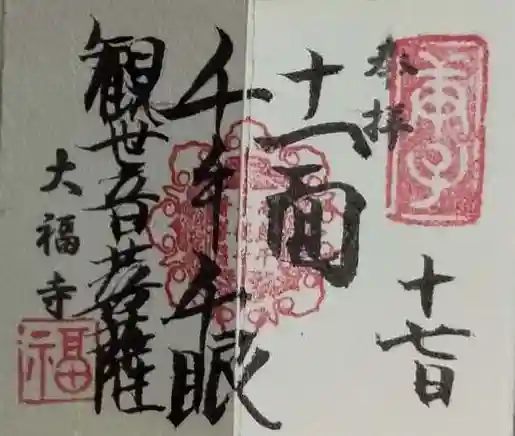 奉拝
十七日
十一面
千手千眼
観世音菩薩
大福寺
福